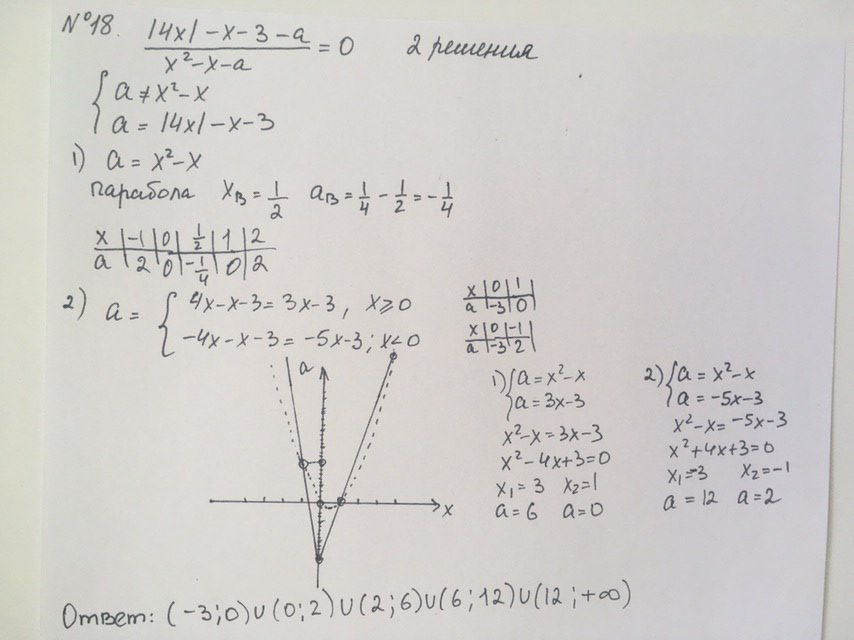 N°18. |4x|-x-3-a / x²-x-a = 0   2 решения
{ a ≠ x²-x
a = |4x|-x-3
1) a = x²-x
парабола x_B = 1/2   a_B = 1/4 - 1/2 = -1/4
x | -1 | 0 | 1/2 | 1 | 2
a | 2 | 0 | -1/4 | 0 | 2
2) a = { 4x-x-3 = 3x-3, x⩾0
-4x-x-3 = -5x-3; x<0
x | 0 | 1
a | -3 | 0
x | 0 | -1
a | -3 | 2
a
x
1) { a = x²-x
a = 3x-3
x²-x = 3x-3
x²-4x+3=0
x₁=3   x₂=1
a=6   a=0
2) { a = x²-x
a = -5x-3
x²-x = -5x-3
x²+4x+3=0
x₁=-3   x₂=-1
a=12   a=2
Ответ: (-3;0)∪(0;2)∪(2;6)∪(6;12)∪(12;+∞)